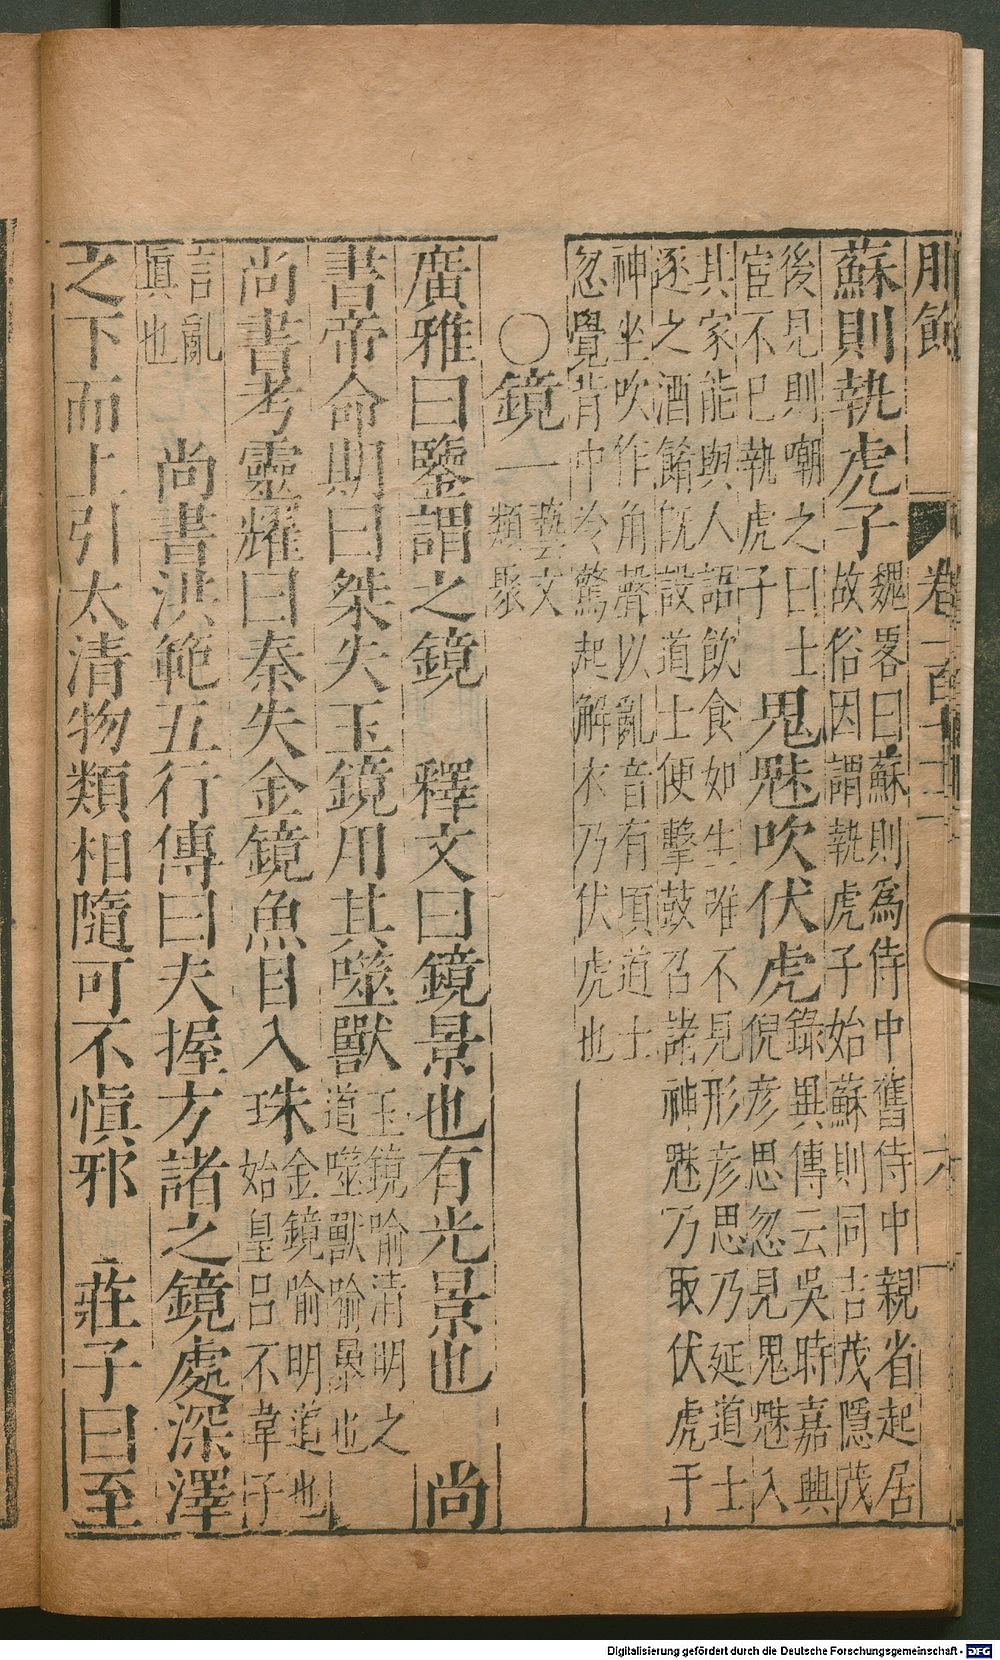 服飾 卷一百七十二 六
蘇則執虎子 魏畧曰蘇則為侍中舊侍中親省起居
故俗因謂執虎子始蘇則同吉茂隱茂
後見則嘲之曰士
宦不巳執虎子 鬼魅吹伏虎 錄異傳云吳時嘉興
倪彦思忽見鬼魅入
其家能與人語飲食如生唯不見形彦思乃延道士
逐之酒餚旣設道士便擊鼓召諸神魅乃取伏虎于
神坐吹作角聲以亂音有頃道士
忽覺背中冷驚起解衣乃伏虎也
〇鏡一 藝文
類聚
廣雅曰鑒謂之鏡 釋文曰鏡景也有光景也 尚
書帝命期曰桀失玉鏡用其噬獸 玉鏡喻清明之
道噬獸喻暴也
尚書考靈耀曰秦失金鏡魚目入珠 金鏡喻明道也
始皇呂不韋子
言亂
眞也 尚書洪範五行傳曰夫握方諸之鏡處深澤
之下而上引太清物類相隨可不慎邪 莊子曰至
Digitalisierung gefördert durch die Deutsche Forschungsgemeinschaft - DFG